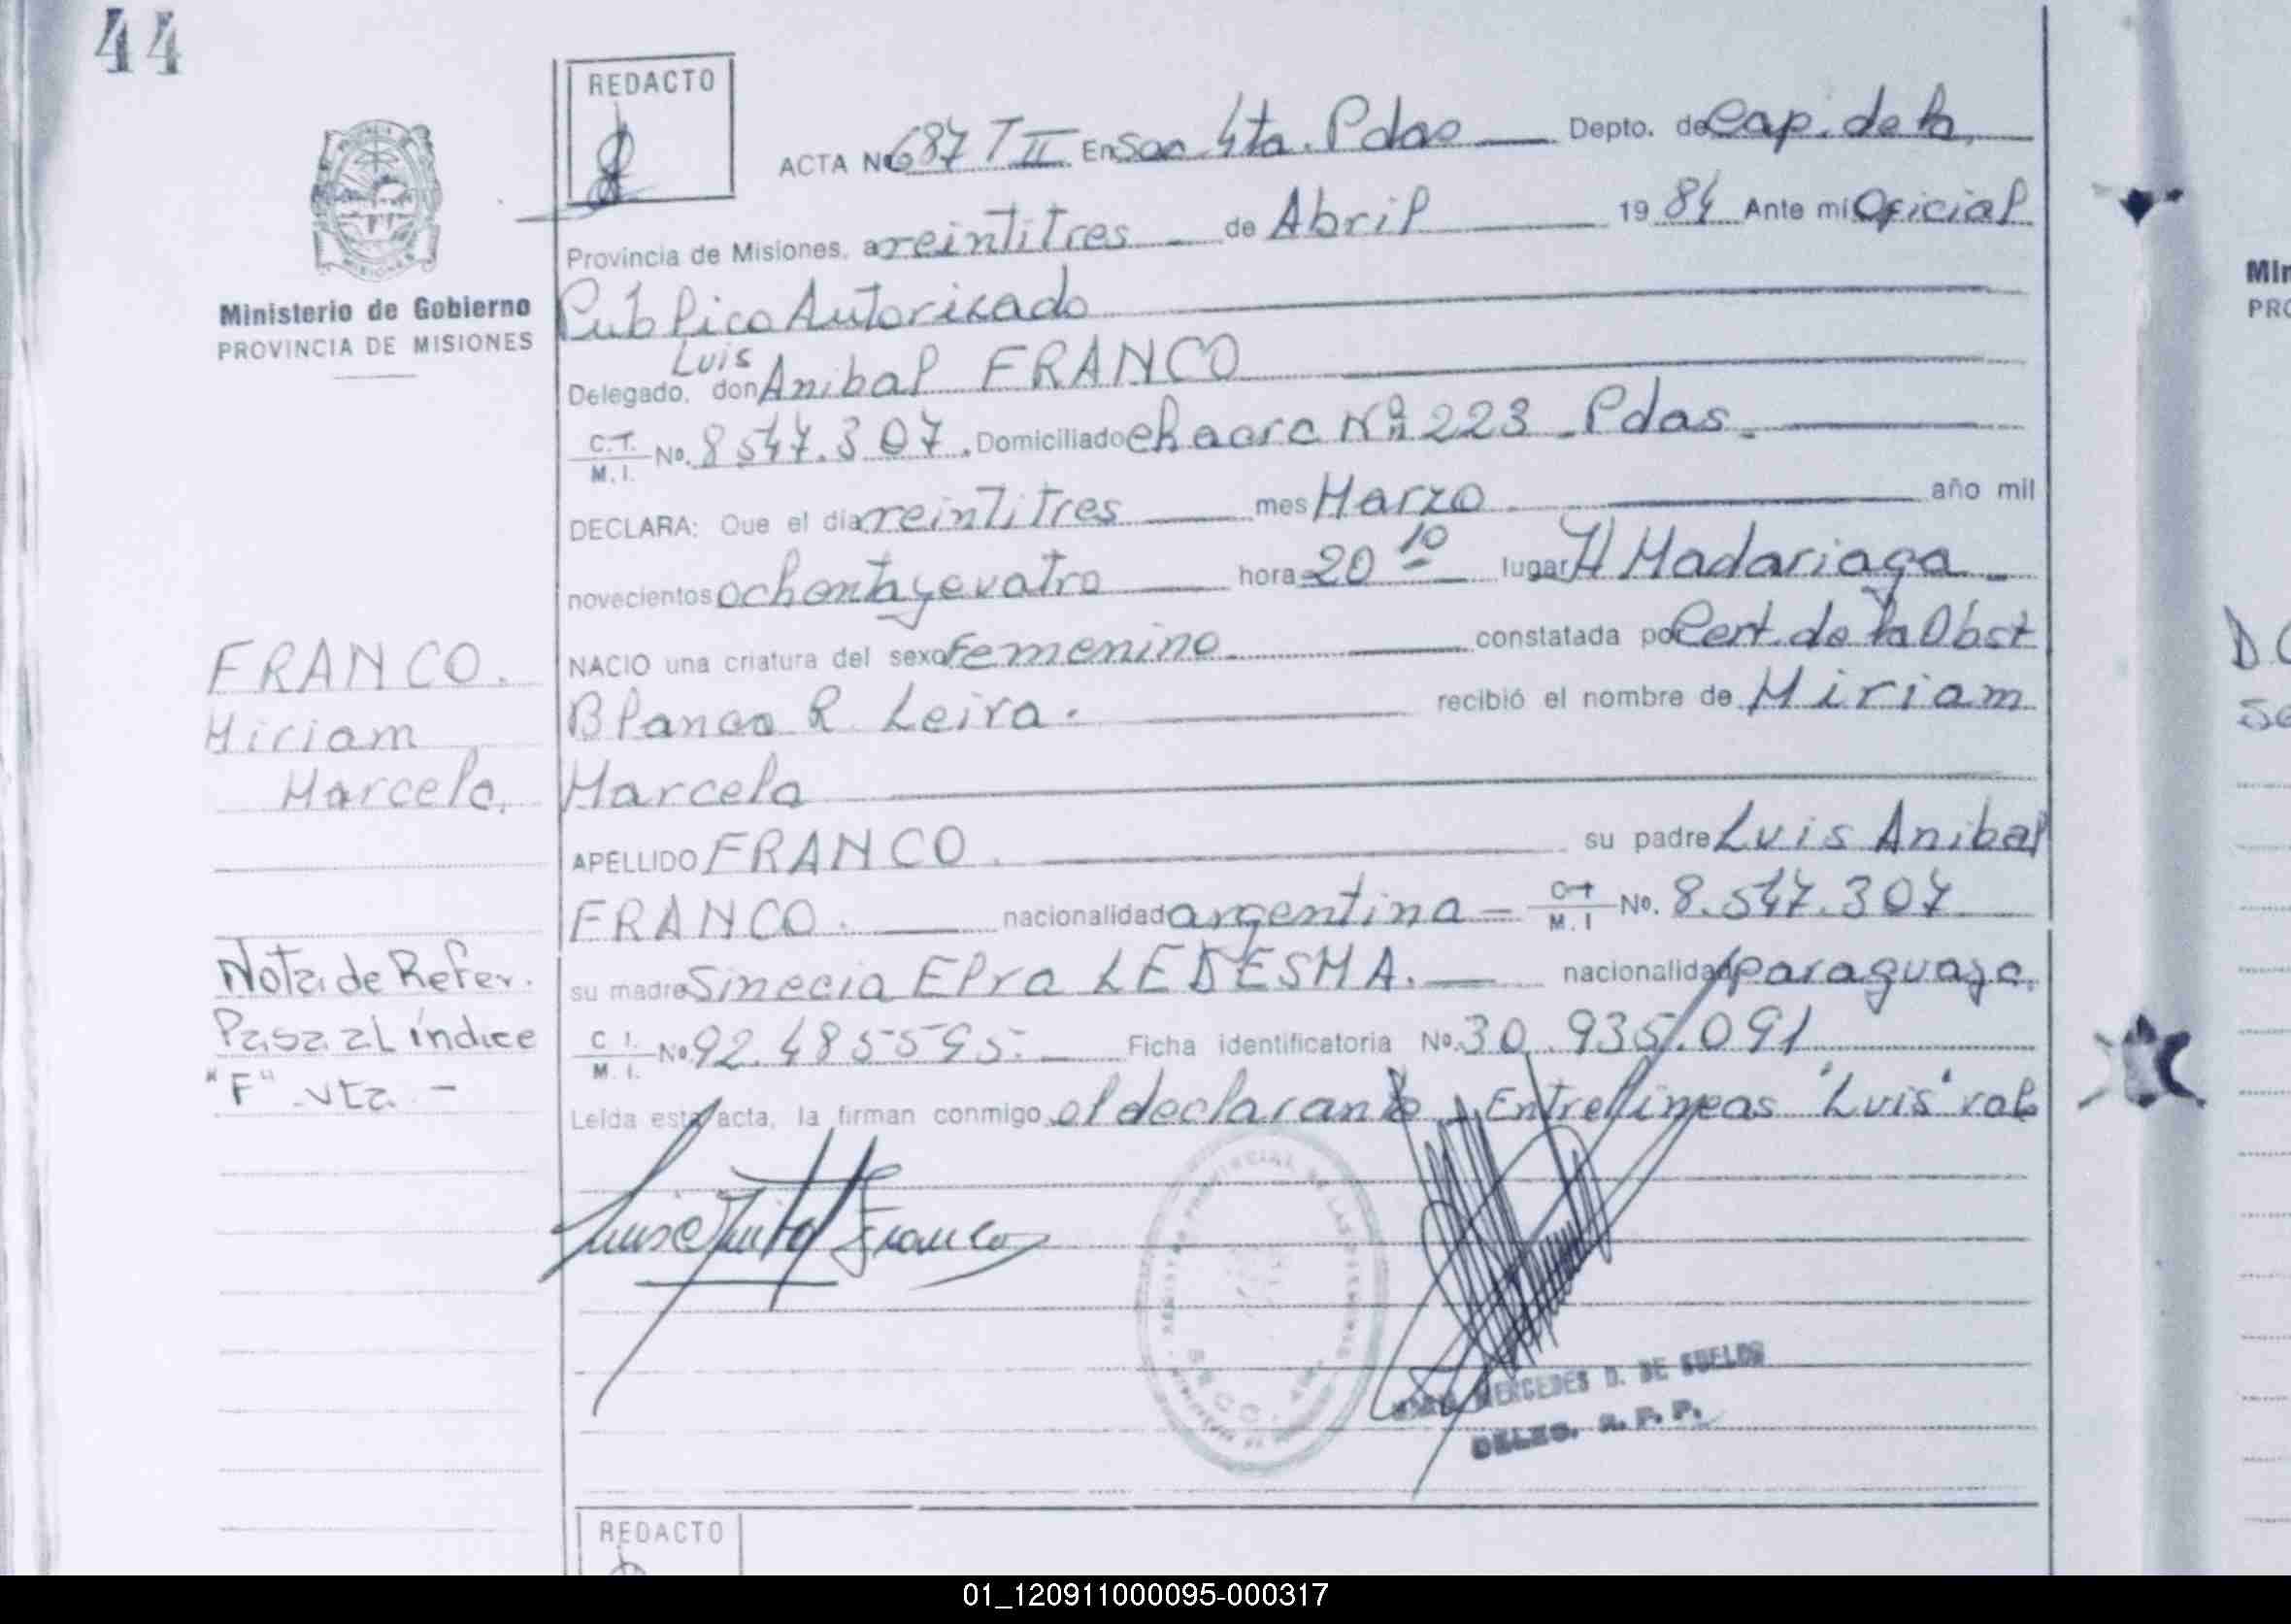 44
REDACTO
ACTA No 687 T II En Sec. 4ta. Pdas Depto. de Cap. de la
Provincia de Misiones, a veintitres de Abril 1984 Ante mi Oficial
Ministerio de Gobierno
PROVINCIA DE MISIONES
Público Autorizado
Luis
Delegado, don Anibal FRANCO
C.T. M.I. No. 8547.307. Domiciliado chacra Nº 223 Pdas.
DECLARA: Que el día veintitres mes Marzo año mil
novecientos ochenta y cuatro hora 20 10 lugar H Madariaga
NACIO una criatura del sexo femenino constatada por Cert. de la Obst
Blanca R Leiva. recibió el nombre de Miriam
Marcela
APELLIDO FRANCO. su padre Luis Anibal
FRANCO. nacionalidad argentina M.I No. 8.547.307
su madre Sinecia Elva LEDESMA. nacionalidad paraguaya.
C I. M. I. No 92.485595. Ficha identificatoria No. 30.935.091
Leída esta acta, la firman conmigo el declarante Entrelineas "Luis" vale
FRANCO.
Miriam
Marcela.
Nota de Refer.
Pasa al índice
"F" vta. -
Luis Anibal Franco
MERCEDES D. DE
DELEG. R. P. P.
REDACTO
Min
PRO
01_120911000095-000317